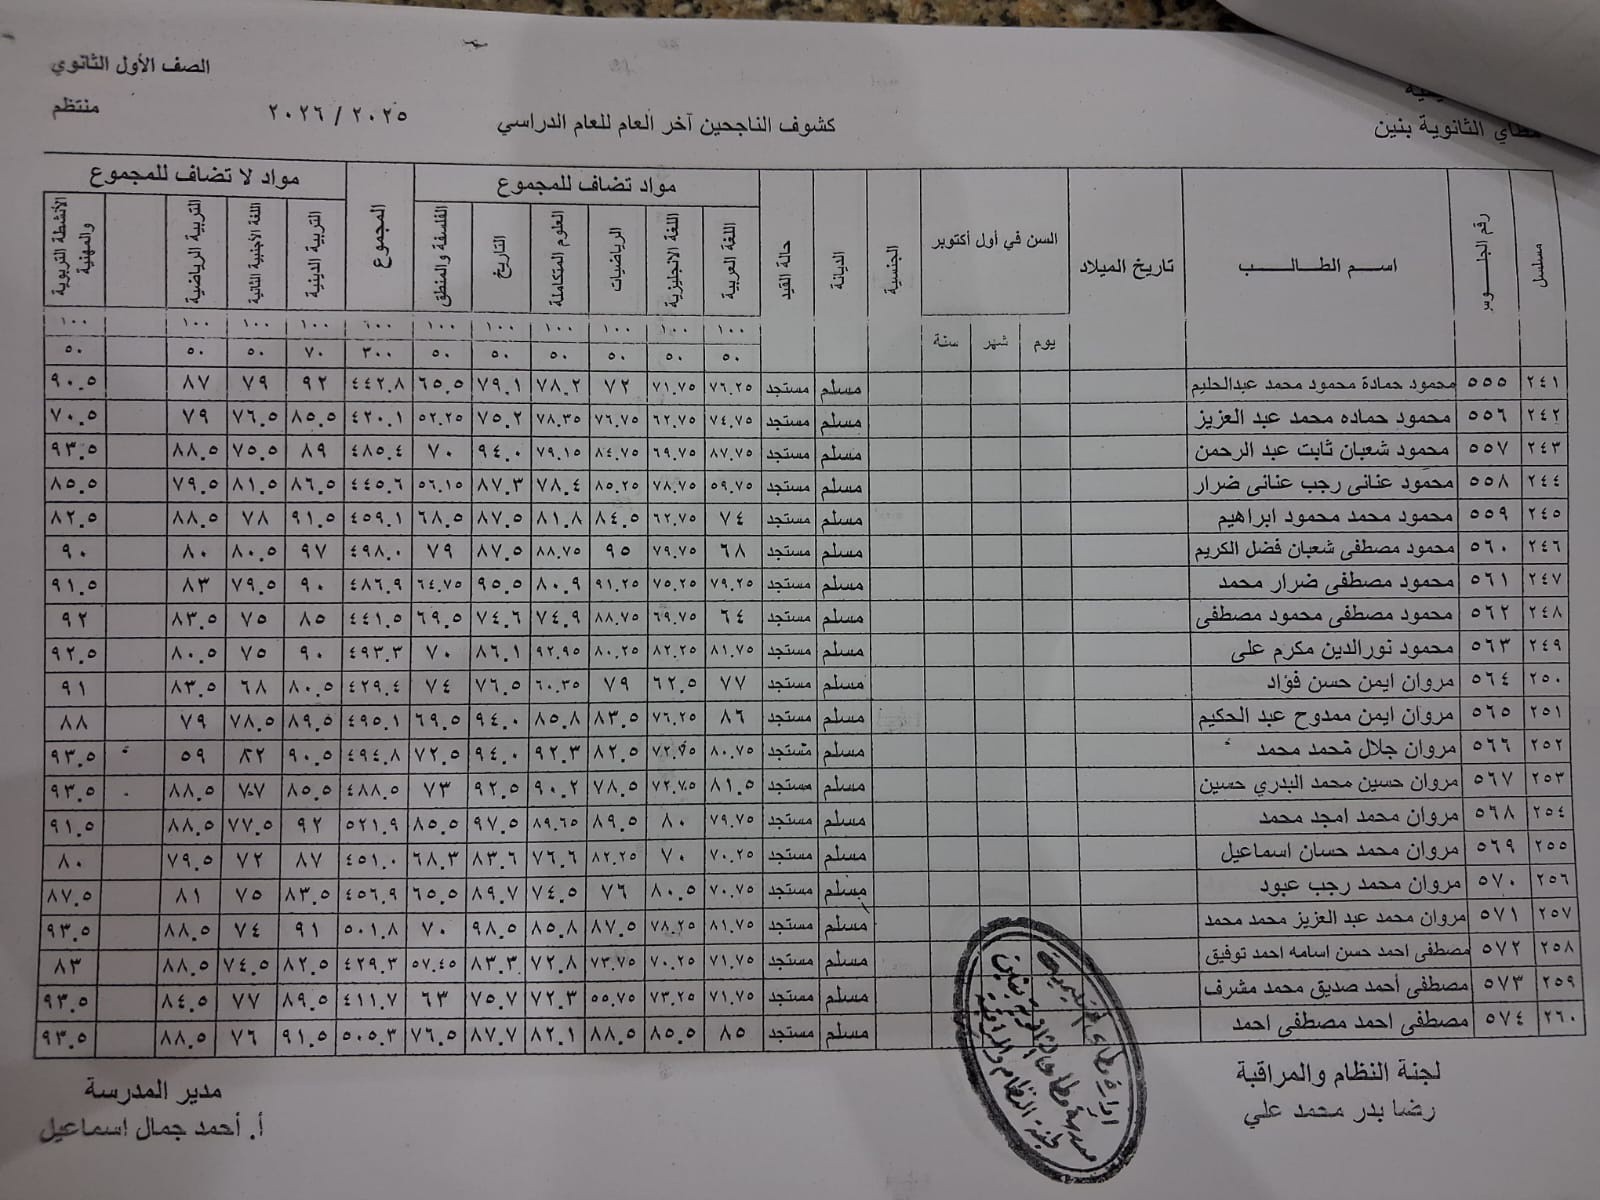 الصف الأول الثانوي
مطاي الثانوية بنين
كشوف الناجحين آخر العام للعام الدراسي ٢٠٢٥ / ٢٠٢٦ منتظم
مسلسل رقم الجلوس اسم الطالب تاريخ الميلاد السن في أول أكتوبر الجنسية الديانة حالة القيد مواد تضاف للمجموع المجموع مواد لا تضاف للمجموع
يوم شهر سنة اللغة العربية اللغة الانجليزية الرياضيات العلوم المتكاملة التاريخ الفلسفة والمنطق التربية الدينية اللغة الأجنبية الثانية التربية الرياضية الأنشطة التربوية والمهنية
١٠٠ ١٠٠ ١٠٠ ١٠٠ ١٠٠ ١٠٠ ٦٠٠ ١٠٠ ١٠٠ ١٠٠ ١٠٠
٥٠ ٥٠ ٥٠ ٥٠ ٥٠ ٥٠ ٣٠٠ ٧٠ ٥٠ ٥٠ ٥٠
٢٤١ ٥٥٥ محمود حمادة محمود محمد عبدالحليم مسلم مستجد ٧٦.٢٥ ٧١.٧٥ ٧٢ ٧٨.٢ ٧٩.١ ٦٥.٥ ٤٤٢.٨ ٩٢ ٧٩ ٨٧ ٩٠.٥
٢٤٢ ٥٥٦ محمود حماده محمد عبد العزيز مسلم مستجد ٧٤.٧٥ ٦٢.٧٥ ٧٦.٧٥ ٧٨.٣٥ ٧٥.٢ ٥٢.٢٥ ٤٢٠.١ ٨٥.٥ ٧٦.٥ ٧٩ ٧٠.٥
٢٤٣ ٥٥٧ محمود شعبان ثابت عبد الرحمن مسلم مستجد ٨٧.٧٥ ٦٩.٧٥ ٨٤.٧٥ ٧٩.١٥ ٩٤.٠ ٧٠ ٤٨٥.٤ ٨٩ ٧٥.٥ ٨٨.٥ ٩٣.٥
٢٤٤ ٥٥٨ محمود عنانى رجب عنانى ضرار مسلم مستجد ٥٩.٧٥ ٧٨.٧٥ ٨٥.٢٥ ٧٨.٤ ٨٧.٣ ٥٦.١٥ ٤٤٥.٦ ٨٦.٥ ٨١.٥ ٧٩.٥ ٨٥.٥
٢٤٥ ٥٥٩ محمود محمد محمود ابراهيم مسلم مستجد ٧٤ ٦٢.٧٥ ٨٤.٥ ٨١.٨ ٨٧.٥ ٦٨.٥ ٤٥٩.١ ٩١.٥ ٧٨ ٨٨.٥ ٨٢.٥
٢٤٦ ٥٦٠ محمود مصطفى شعبان فضل الكريم مسلم مستجد ٦٨ ٧٩.٧٥ ٩٥ ٨٨.٧٥ ٨٧.٥ ٧٩ ٤٩٨.٠ ٩٧ ٨٠.٥ ٨٠ ٩٠
٢٤٧ ٥٦١ محمود مصطفى ضرار محمد مسلم مستجد ٧٩.٢٥ ٧٥.٢٥ ٩١.٢٥ ٨٠.٩ ٩٥.٥ ٦٤.٧٥ ٤٨٦.٩ ٩٠ ٧٩.٥ ٨٣ ٩١.٥
٢٤٨ ٥٦٢ محمود مصطفى محمود مصطفى مسلم مستجد ٦٤ ٦٩.٧٥ ٨٨.٧٥ ٧٤.٩ ٧٤.٦ ٦٩.٥ ٤٤١.٥ ٨٥ ٧٥ ٨٣.٥ ٩٢
٢٤٩ ٥٦٣ محمود نورالدين مكرم على مسلم مستجد ٨١.٧٥ ٨٢.٢٥ ٨٠.٢٥ ٩٢.٩٥ ٨٦.١ ٧٠ ٤٩٣.٣ ٩٠ ٧٥ ٨٠.٥ ٩٢.٥
٢٥٠ ٥٦٤ مروان ايمن حسن فؤاد مسلم مستجد ٧٧ ٦٢.٥ ٧٩ ٦٠.٣٥ ٧٦.٥ ٧٤ ٤٢٩.٤ ٨٠.٥ ٦٨ ٨٣.٥ ٩١
٢٥١ ٥٦٥ مروان ايمن ممدوح عبد الحكيم مسلم مستجد ٨٦ ٧٦.٢٥ ٨٣.٥ ٨٥.٨ ٩٤.٠ ٦٩.٥ ٤٩٥.١ ٨٩.٥ ٧٨.٥ ٧٩ ٨٨
٢٥٢ ٥٦٦ مروان جلال محمد محمد مسلم مستجد ٨٠.٧٥ ٧٢.٧٥ ٨٢.٥ ٩٢.٣ ٩٤.٠ ٧٢.٥ ٤٩٤.٨ ٩٠.٥ ٨٢ ٥٩ ٩٣.٥
٢٥٣ ٥٦٧ مروان حسين محمد البدري حسين مسلم مستجد ٨١.٥ ٧٢.٧٥ ٧٨.٥ ٩٠.٢ ٩٢.٥ ٧٣ ٤٨٨.٥ ٨٥.٥ ٧٠٧ ٨٨.٥ ٩٣.٥
٢٥٤ ٥٦٨ مروان محمد امجد محمد مسلم مستجد ٧٩.٧٥ ٨٠ ٨٩.٥ ٨٩.٦٥ ٩٧.٥ ٨٥.٥ ٥٢١.٩ ٩٢ ٧٧.٥ ٨٨.٥ ٩١.٥
٢٥٥ ٥٦٩ مروان محمد حسان اسماعيل مسلم مستجد ٧٠.٢٥ ٧٠ ٨٢.٢٥ ٧٦.٦ ٨٣.٦ ٦٨.٣ ٤٥١.٠ ٨٧ ٧٢ ٧٩.٥ ٨٠
٢٥٦ ٥٧٠ مروان محمد رجب عبود مسلم مستجد ٧٠.٧٥ ٨٠.٥ ٧٦ ٧٤.٥ ٨٩.٧ ٦٥.٥ ٤٥٦.٩ ٨٣.٥ ٧٥ ٨١ ٨٧.٥
٢٥٧ ٥٧١ مروان محمد عبد العزيز محمد محمد مسلم مستجد ٨١.٧٥ ٧٨.٢٥ ٨٧.٥ ٨٥.٨ ٩٨.٥ ٧٠ ٥٠١.٨ ٩١ ٧٤ ٨٨.٥ ٩٣.٥
٢٥٨ ٥٧٢ مصطفى احمد حسن اسامه احمد توفيق مسلم مستجد ٧١.٧٥ ٧٠.٢٥ ٧٣.٧٥ ٧٢.٨ ٨٣.٣ ٥٧.٤٥ ٤٢٩.٣ ٨٢.٥ ٧٤.٥ ٨٨.٥ ٨٣
٢٥٩ ٥٧٣ مصطفى أحمد صديق محمد مشرف مسلم مستجد ٧١.٧٥ ٧٣.٢٥ ٥٥.٧٥ ٧٢.٣ ٧٥.٧ ٦٣ ٤١١.٧ ٨٩.٥ ٧٧ ٨٤.٥ ٩٣.٥
٢٦٠ ٥٧٤ مصطفى احمد مصطفى احمد مسلم مستجد ٨٥ ٨٥.٥ ٨٨.٥ ٨٢.١ ٨٧.٧ ٧٦.٥ ٥٠٥.٣ ٩١.٥ ٧٦ ٨٨.٥ ٩٣.٥
لجنة النظام والمراقبة
رضا بدر محمد علي
مدير المدرسة
أ. أحمد جمال اسماعيل
لجنة النظام والمراقبة